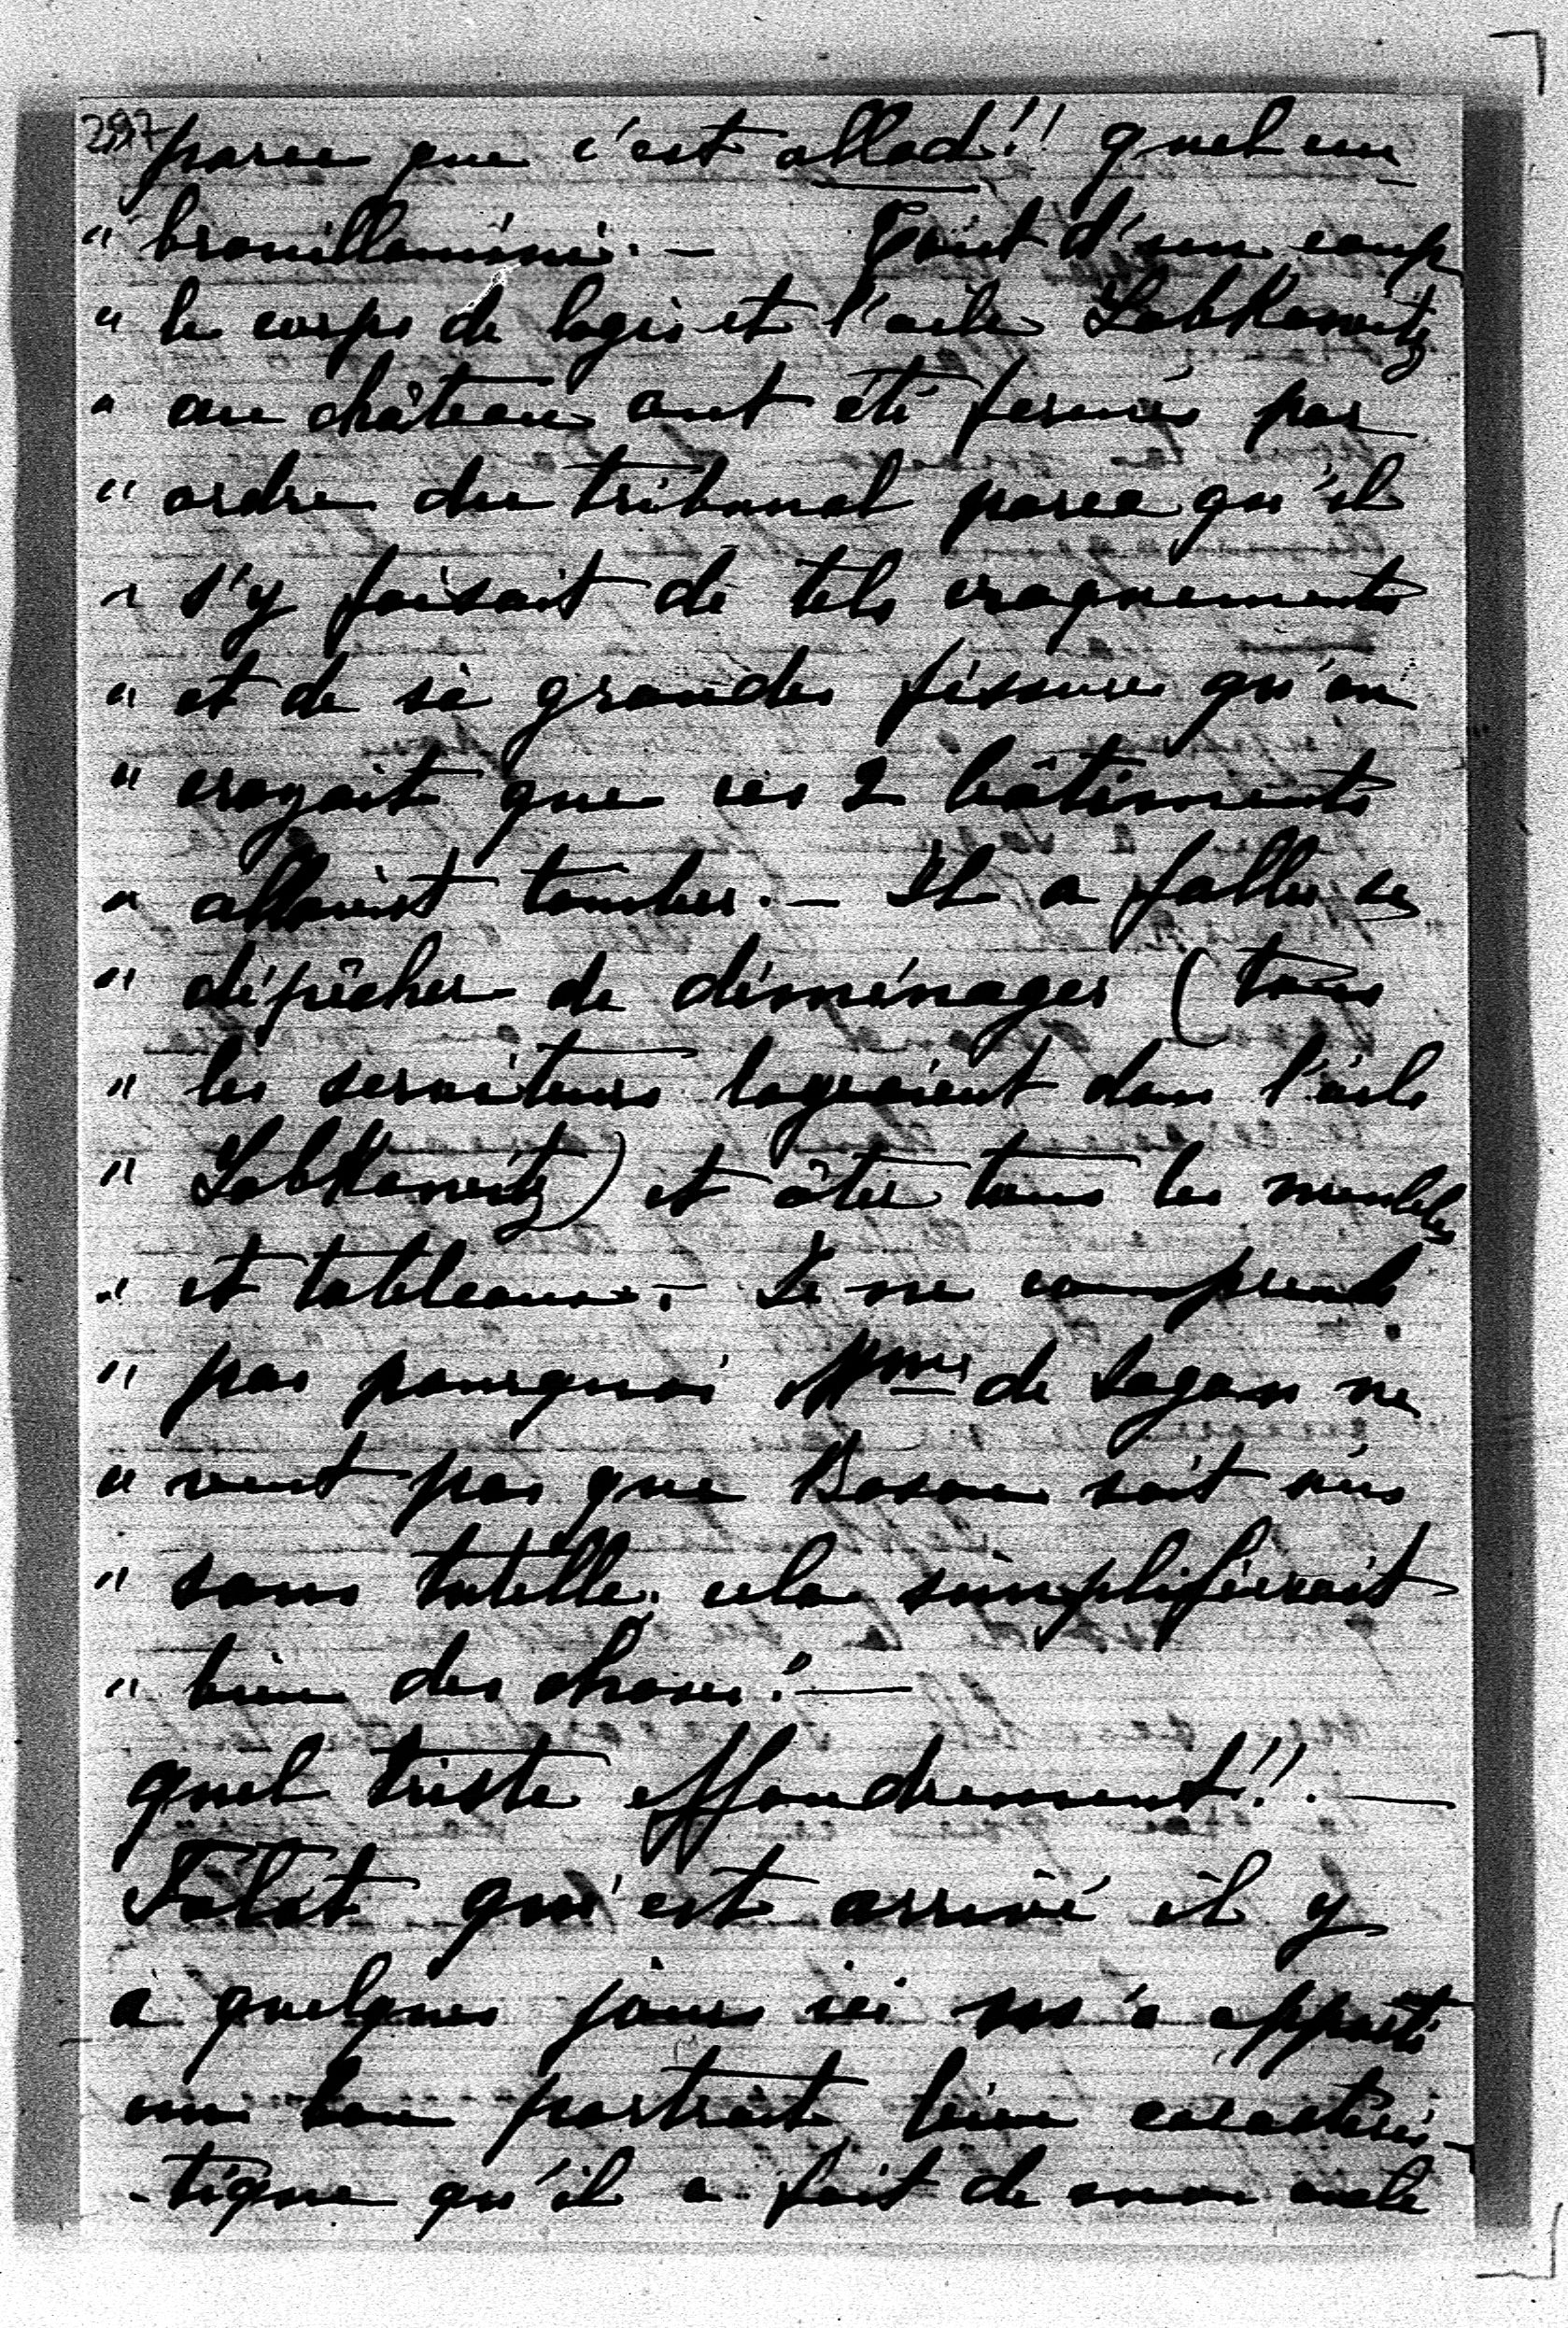 297 parce que c'est allod!! quel em
" brouillamini. — Tout d'un coup
" le corps de logis et l'aile Lobkowitz
" au château ont été fermés par
" ordre du tribunal parce qu'il
" s'y faisait de tels craquements
" et de si grandes fissures qu'on
" croyait que ces 2 bâtiments
" allaient tomber. — Il a fallu se
" dépêcher de déménager (tous
" les serviteurs logeaient dans l'aile
" Lobkowitz) et ôter tous les meubles
" et tableaux. — Je ne comprends
" pas pourquoi Mme de Sagan ne
" veut pas que Boson soit mis
" sous tutelle. cela simplifierait
" bien des choses." —
quel triste effondrement!! —
Falat qui est arrivé il y
a quelques jours ici m'a apporté
un bon portrait bien caractéris-
-tique qu'il a fait de mon oncle